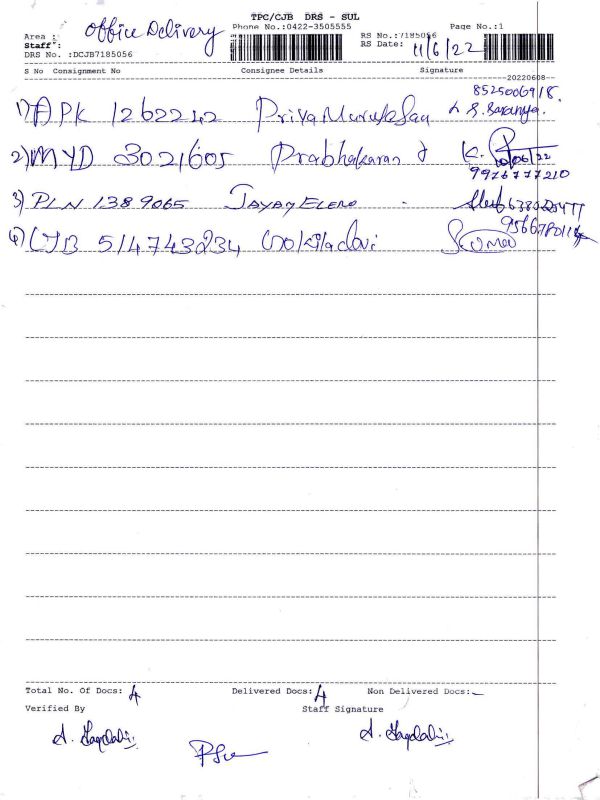 TPC/CJB DRS - SUL
Office Delivery
Phone No.:0422-3505555
Page No.:1
Area :
RS No.:7185056
Staff :
RS Date: 11/6/22
DRS No. :DCJB7185056
S No Consignment No Consignee Details Signature
20220608
8525006918.
1) APK 1262242 PriyaMurugesan S. Saranya.
2) MYD 3021605 Prabhakaran J K.
9976777210
3) PLN 1389065 Jayam Elero
4) CJB 514743234 Gokiladevi
Total No. Of Docs: 4 Delivered Docs: 4 Non Delivered Docs: -
Verified By Staff Signature